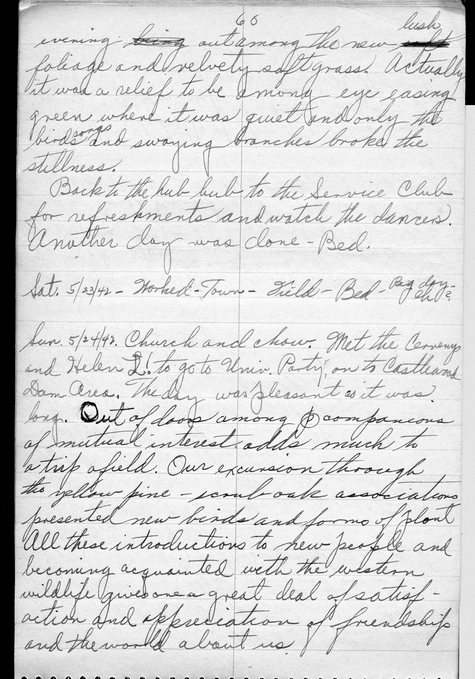 60
evening being out among the new lush soft
foliage and velvety soft grass. Actually
it was a relief to be among eye easing
green where it was quiet and only the
birds songs and swaying branches broke the
stillness.
Back to the hub bub to the Service Club
for refreshments and watch the dancers.
Another day was done - Bed.
Sat. 5/23/42 - Worked - Town - Field - Bed - Pay day
Sun. 5/24/42. Church and chow. Met the
and Helen L! to go to Univ. Party, on to Castlewood
Dam Area. The day was pleasant as it was
long. Out of doors among companions
of mutual interest adds much to
a trip afield. Our excursion through
the yellow pine - scrub oak associations
presented new birds and forms of plant
All these introductions to new people and
becoming acquainted with the western
wildlife gives one a great deal of satisf-
action and appreciation of friendship
and the world about us.